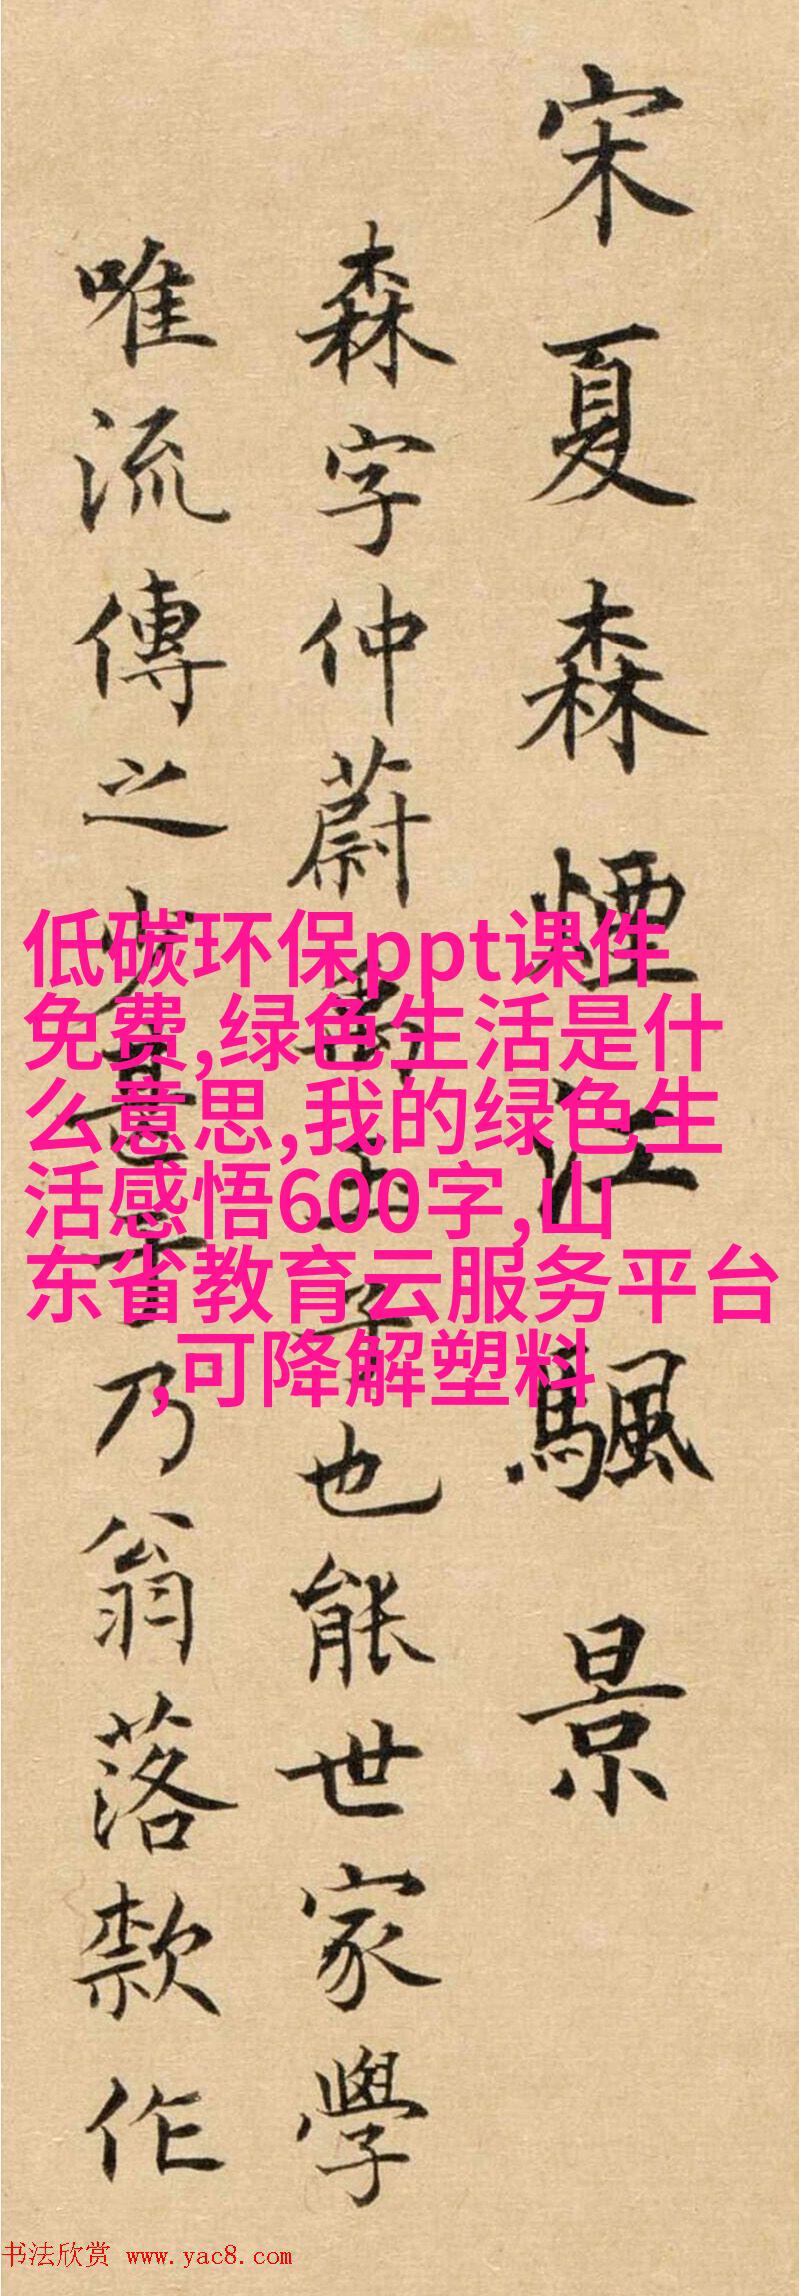 宋夏森煙江颿景
森字仲蔚圭子也能世家學
唯流傳之少甚乃翁落款作
低碳环保ppt课件
免费,绿色生活是什
么意思,我的绿色生
活感悟600字,山
东省教育云服务平台
,可降解塑料
书法欣赏 www.yac8.com